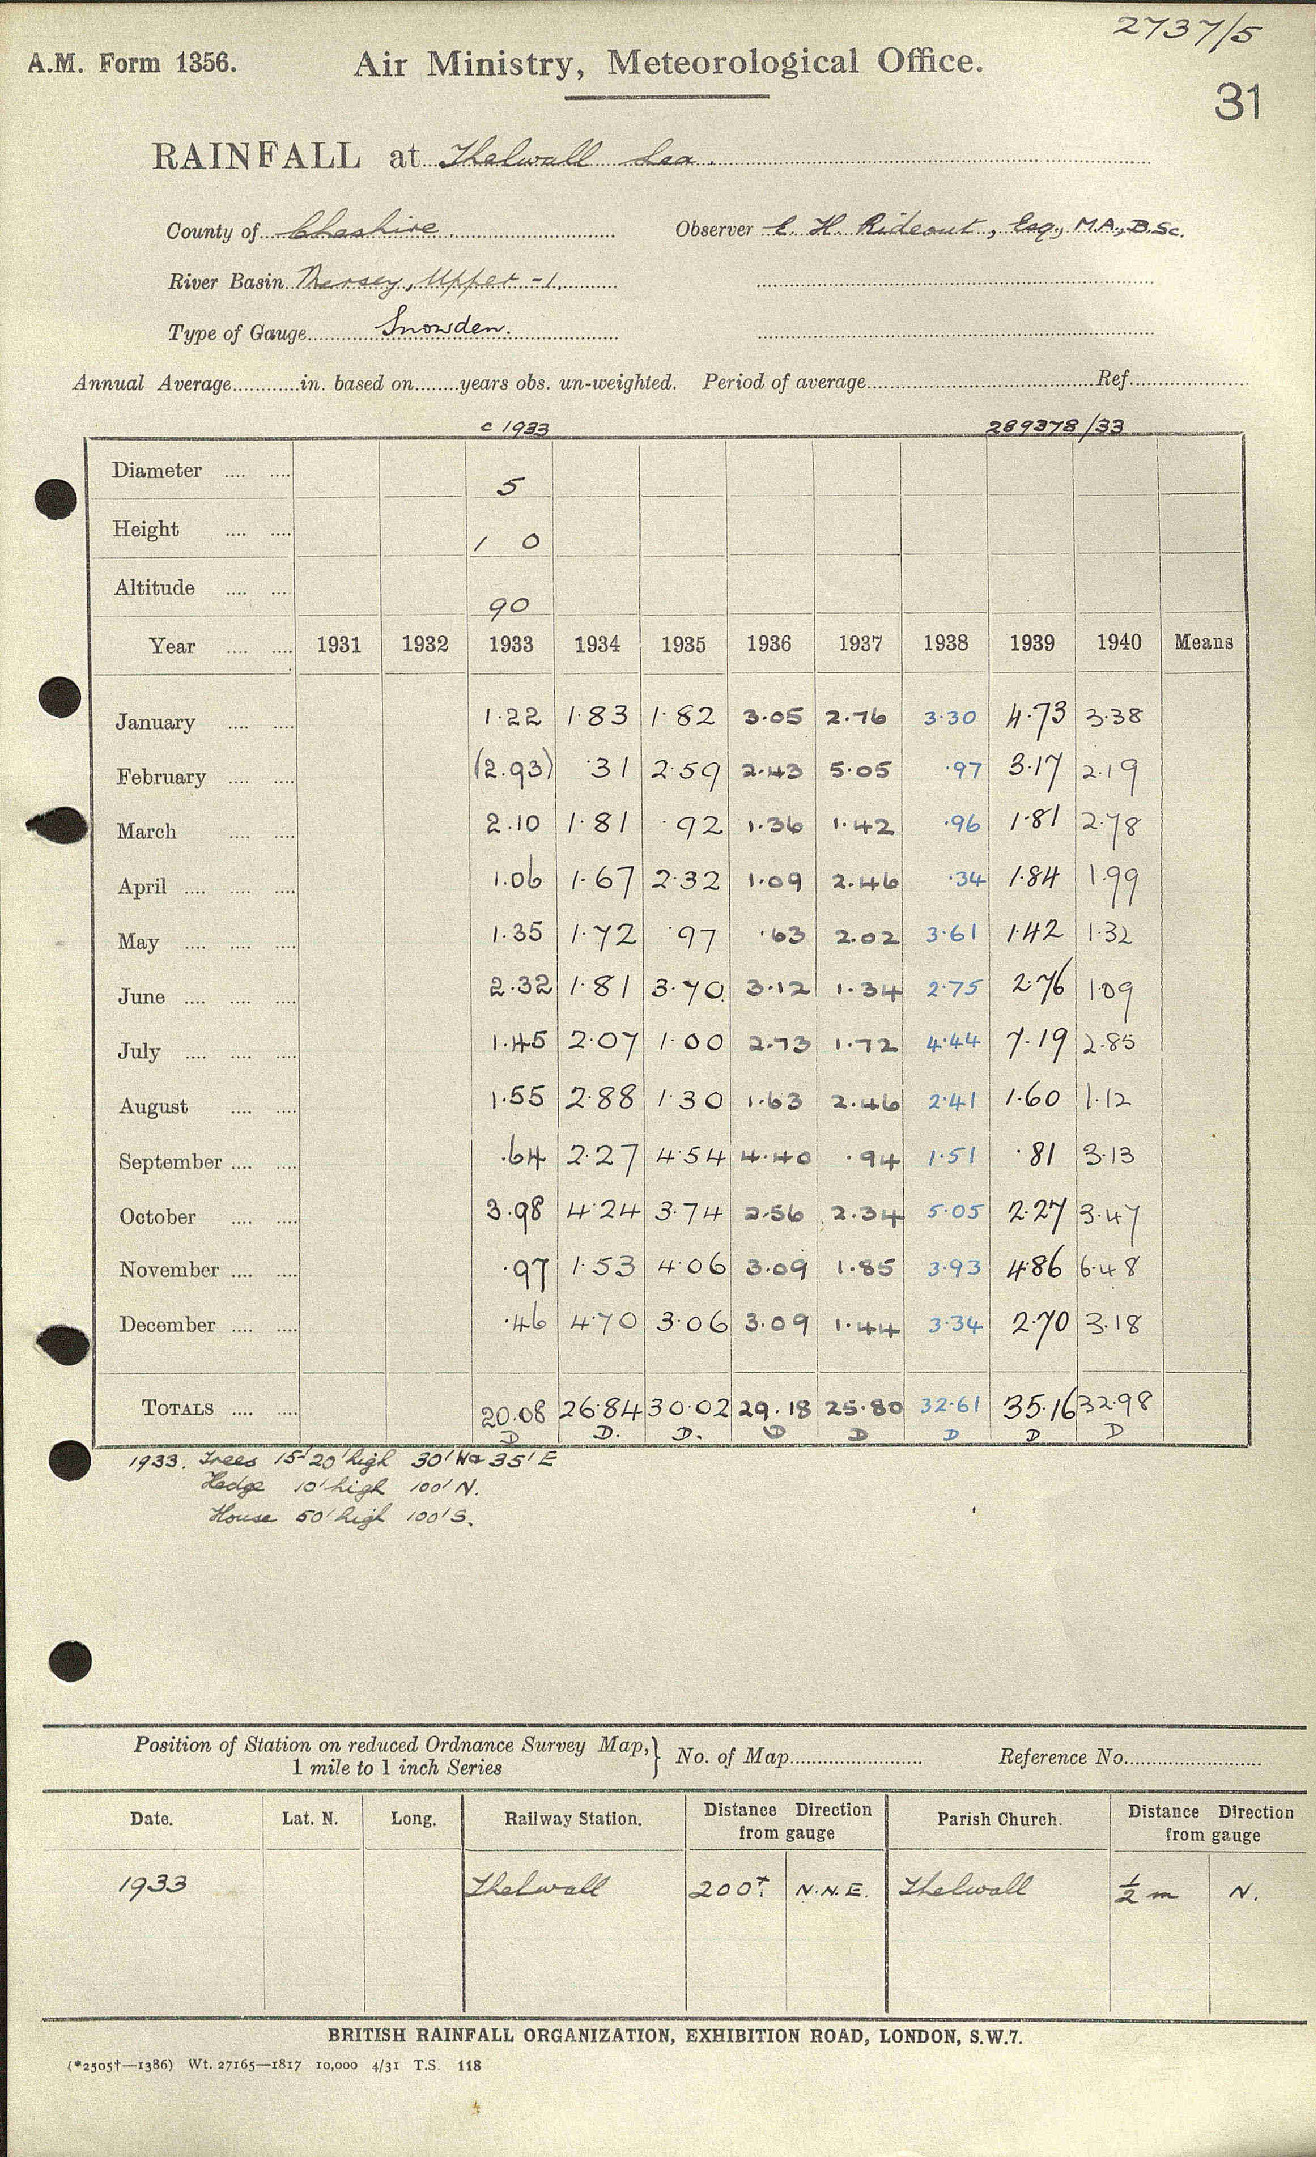 2737/5
A.M. Form 1356.
Air Ministry, Meteorological Office.
31
RAINFALL at Thelwall Lea.
County of Cheshire. Observer E. H. Rideout, Esq., M.A., B.Sc.
River Basin Mersey, Upper - 1.
Type of Gauge Snowden.
Annual Average in. based on years obs. un-weighted. Period of average Ref.
c 1933 289378/33
Diameter 5
Height 1 0
Altitude 90
Year 1931 1932 1933 1934 1935 1936 1937 1938 1939 1940 Means
January 1.22 1.83 1.82 3.05 2.76 3.30 4.73 3.38
February (2.93) .31 2.59 2.43 5.05 .97 3.17 2.19
March 2.10 1.81 .92 1.36 1.42 .96 1.81 2.78
April 1.06 1.67 2.32 1.09 2.46 .34 1.84 1.99
May 1.35 1.72 .97 .63 2.02 3.61 1.42 1.32
June 2.32 1.81 3.70 3.12 1.34 2.75 2.76 1.09
July 1.45 2.07 1.00 2.73 1.72 4.44 7.19 2.85
August 1.55 2.88 1.30 1.63 2.46 2.41 1.60 1.12
September .64 2.27 4.54 4.40 .94 1.51 .81 3.13
October 3.98 4.24 3.74 2.56 2.34 5.05 2.27 3.47
November .97 1.53 4.06 3.09 1.85 3.93 4.86 6.48
December .46 4.70 3.06 3.09 1.44 3.34 2.70 3.18
TOTALS 20.08 26.84 30.02 29.18 25.80 32.61 35.16 32.98
D D. D. D D D D D
1933. Trees 15'-20' high 30' W & 35' E
Hedge 10' high 100' N.
House 50' high 100' S.
Position of Station on reduced Ordnance Survey Map, 1 mile to 1 inch Series } No. of Map Reference No.
Date. Lat. N. Long. Railway Station. Distance Direction from gauge Parish Church. Distance Direction from gauge
1933 Thelwall 200ˣ. N.N.E. Thelwall ½ m N.
BRITISH RAINFALL ORGANIZATION, EXHIBITION ROAD, LONDON, S.W.7.
(*2505†—1386) Wt. 27165—1817 10,000 4/31 T.S. 118